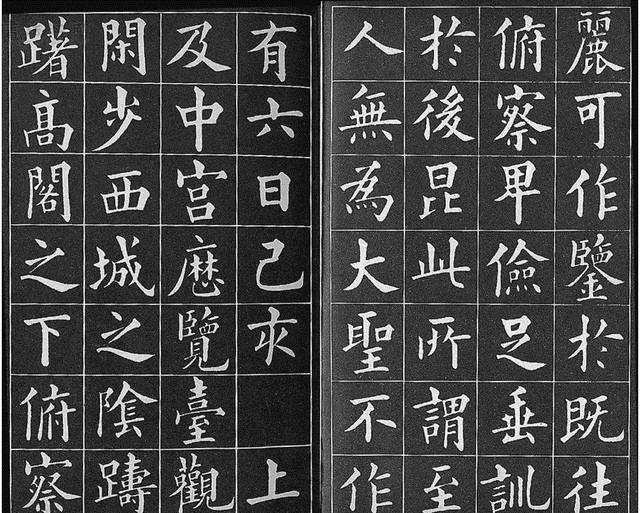 麗可作鑒於既往
俯察卑儉足垂訓
於後昆此所謂至
人無為大聖不作
有六日己亥 上
及中宮歷覽臺觀
閑步西城之陰躊
躇高閣之下俯察